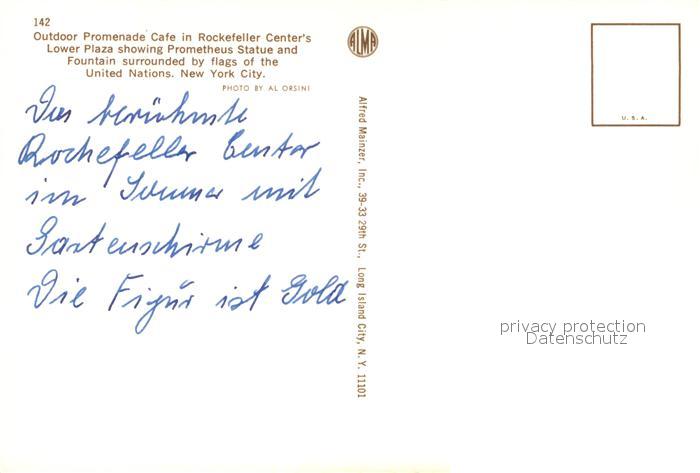 142
Outdoor Promenade Cafe in Rockefeller Center's
Lower Plaza showing Prometheus Statue and
Fountain surrounded by flags of the
United Nations. New York City.
PHOTO BY AL ORSINI
Das berühmte
Rockefeller Center
im Sommer mit
Gartenschirme
Die Figur ist Gold
ALMA
Alfred Mainzer, Inc., 39-33 29th St., Long Island City, N. Y. 11101
U.S.A.
privacy protection
Datenschutz